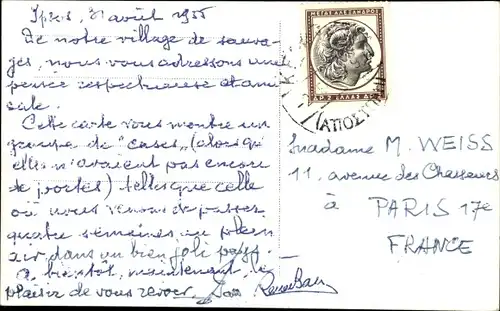 Ipsos, 31 août 1955
De notre village de sauva-
ges, nous vous adressons une
pensée respectueuse et ami-
cale.
Cette carte vous montre un
groupe de "cases, (alors qu'
elles n'avaient pas encore
de portes) telles que celle
où nous venons de passer
quatre semaines en plein
air, dans un bien joli pays.
A bientôt, maintenant, le
plaisir de vous revoir.
ΜΕΓΑΣ ΑΛΕΞΑΝΔΡΟΣ
ΔΡ. 2 ΕΛΛΑΣ ΔΡ. 2
Madame M. WEISS
11, avenue des Chasseurs
à PARIS 17e
FRANCE